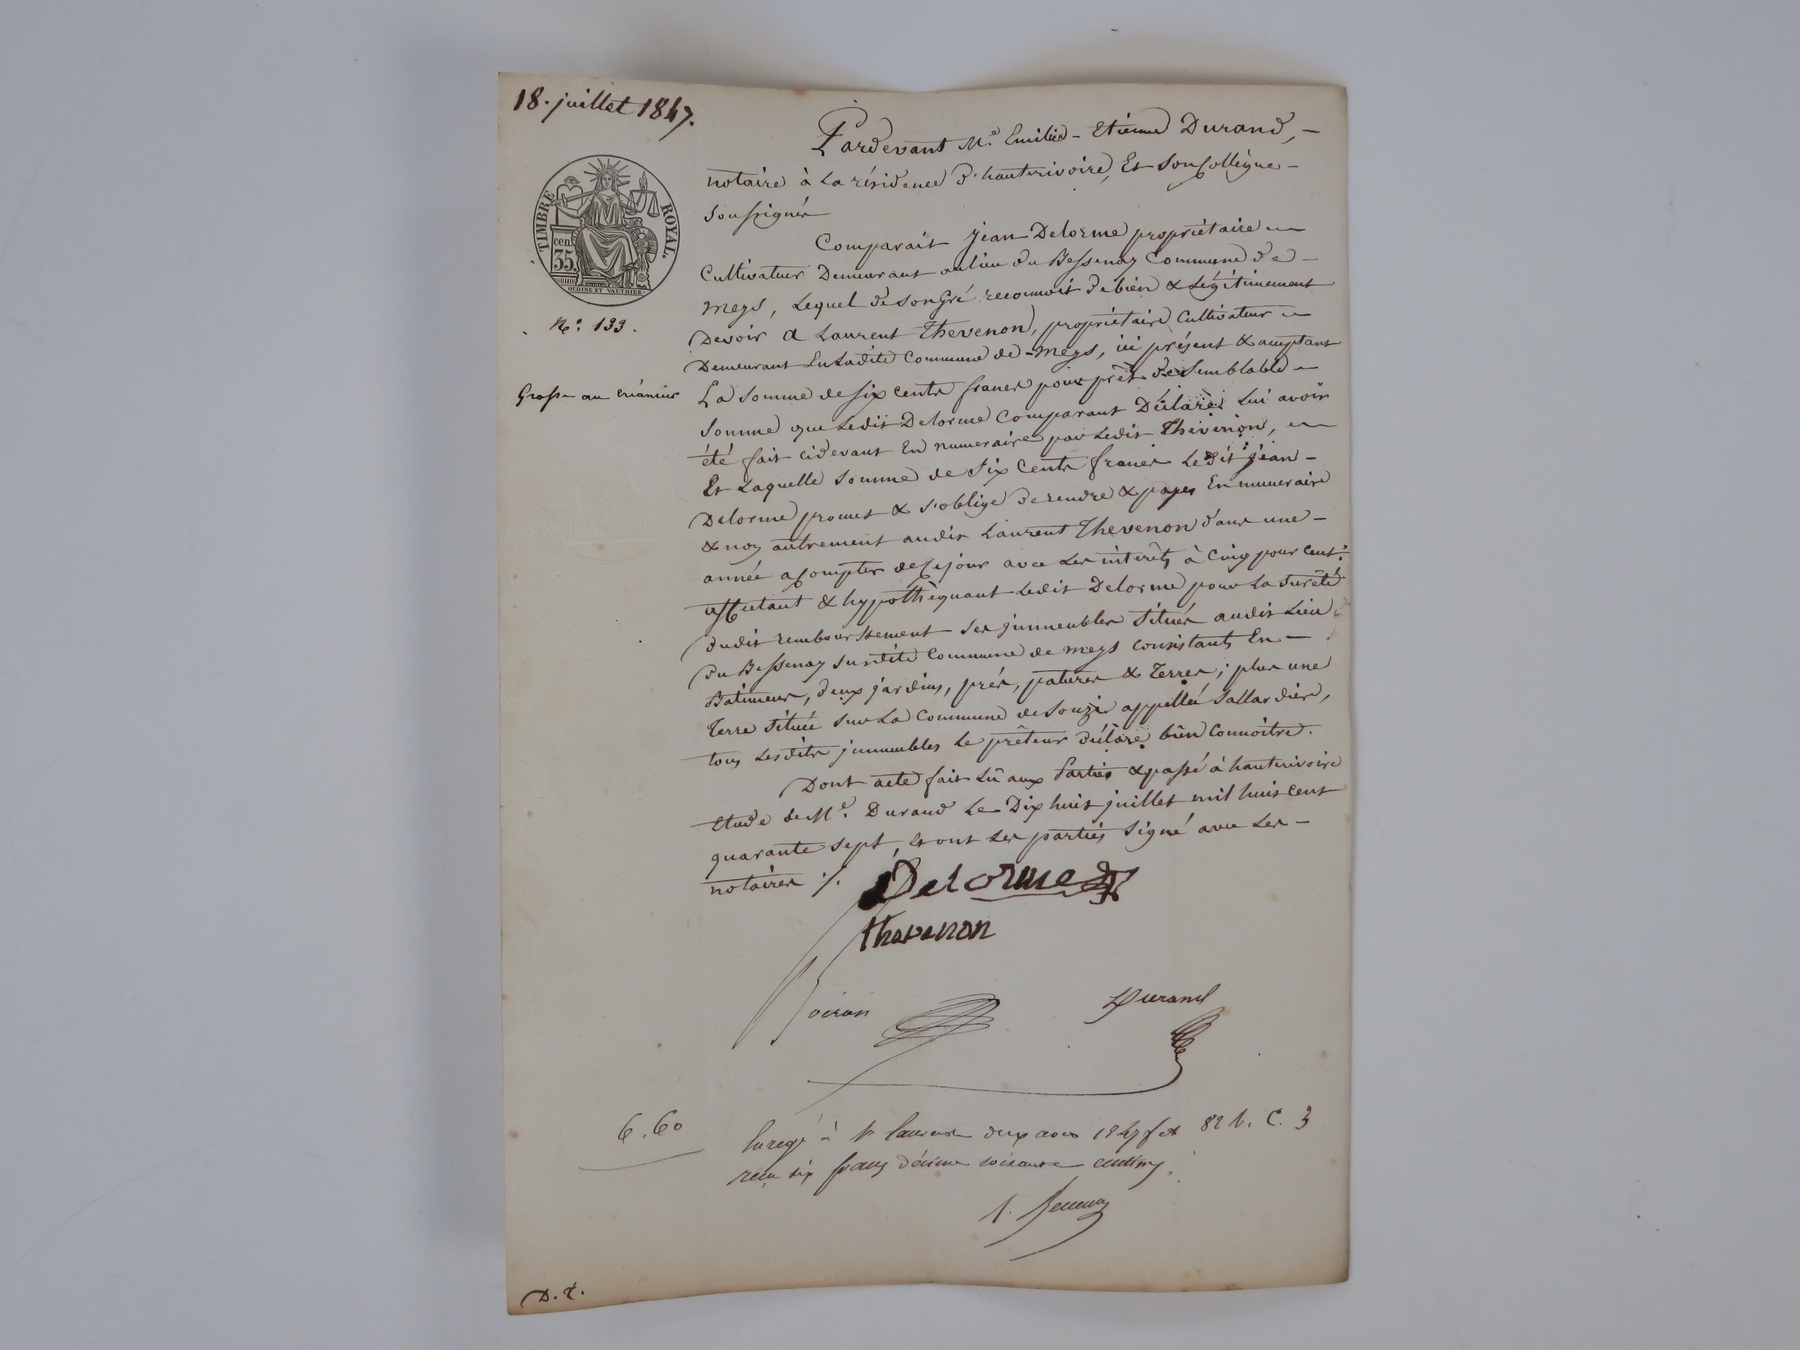 18. juillet 1847.
TIMBRE ROYAL.
cen.
35
OUDINE ET VAUTHIER.
N.º 133.
Pardevant M.e Emilien - Etienne Durand, -
notaire à la résidence d'hauterivoire, Et son Collègue -
soussignés
Comparait Jean Delorme propriétaire
Cultivateur Demeurant au lieu du Bessenay Commune de -
meys, Lequel de son Gré reconnoit de bien & Légitimement
Devoir a Laurent Thevenon, propriétaire Cultivateur
Demeurant En Ladite Commune de - meys, ici présent & acceptant
Grosse au créancier
La somme de six cents francs pour prêt de semblable
somme que Ledit Delorme Comparant Déclare Lui avoir
été fait cidevant En numeraire par Ledit Thevenon,
Et Laquelle somme de six Cents francs Ledit jean -
Delorme promet & s'oblige de rendre & payer En numeraire
& non autrement audit Laurent Thevenon dans une -
année a compter de ce jour avec Les intérêts à Cinq pour cent.
affectant & hypothèquant Ledit Delorme pour La sureté
dudit remboursement ses immeubles situés audit Lieu
du Bessenay susdite Commune de meys consistants En -
Batiments, deux jardins, prés, patures & Terres; plus une
Terre située sur La Commune de souzi appellée Sallardière,
tous Lesdits immeubles Le prêteur déclare bien Connoitre.
Dont acte fait Lu aux Parties & passé à hauterivoire
Etude de M.e Durand Le Dix huit juillet mil huit cent
quarante sept, Et ont Les parties signé avec Les -
notaires ./.
Delorme
thevenon
Durand
6.60
Enregé à St Laurent deux aout 1847 fo 82 v. C. 3
reçu six francs décime soixante centimes.
D. T.